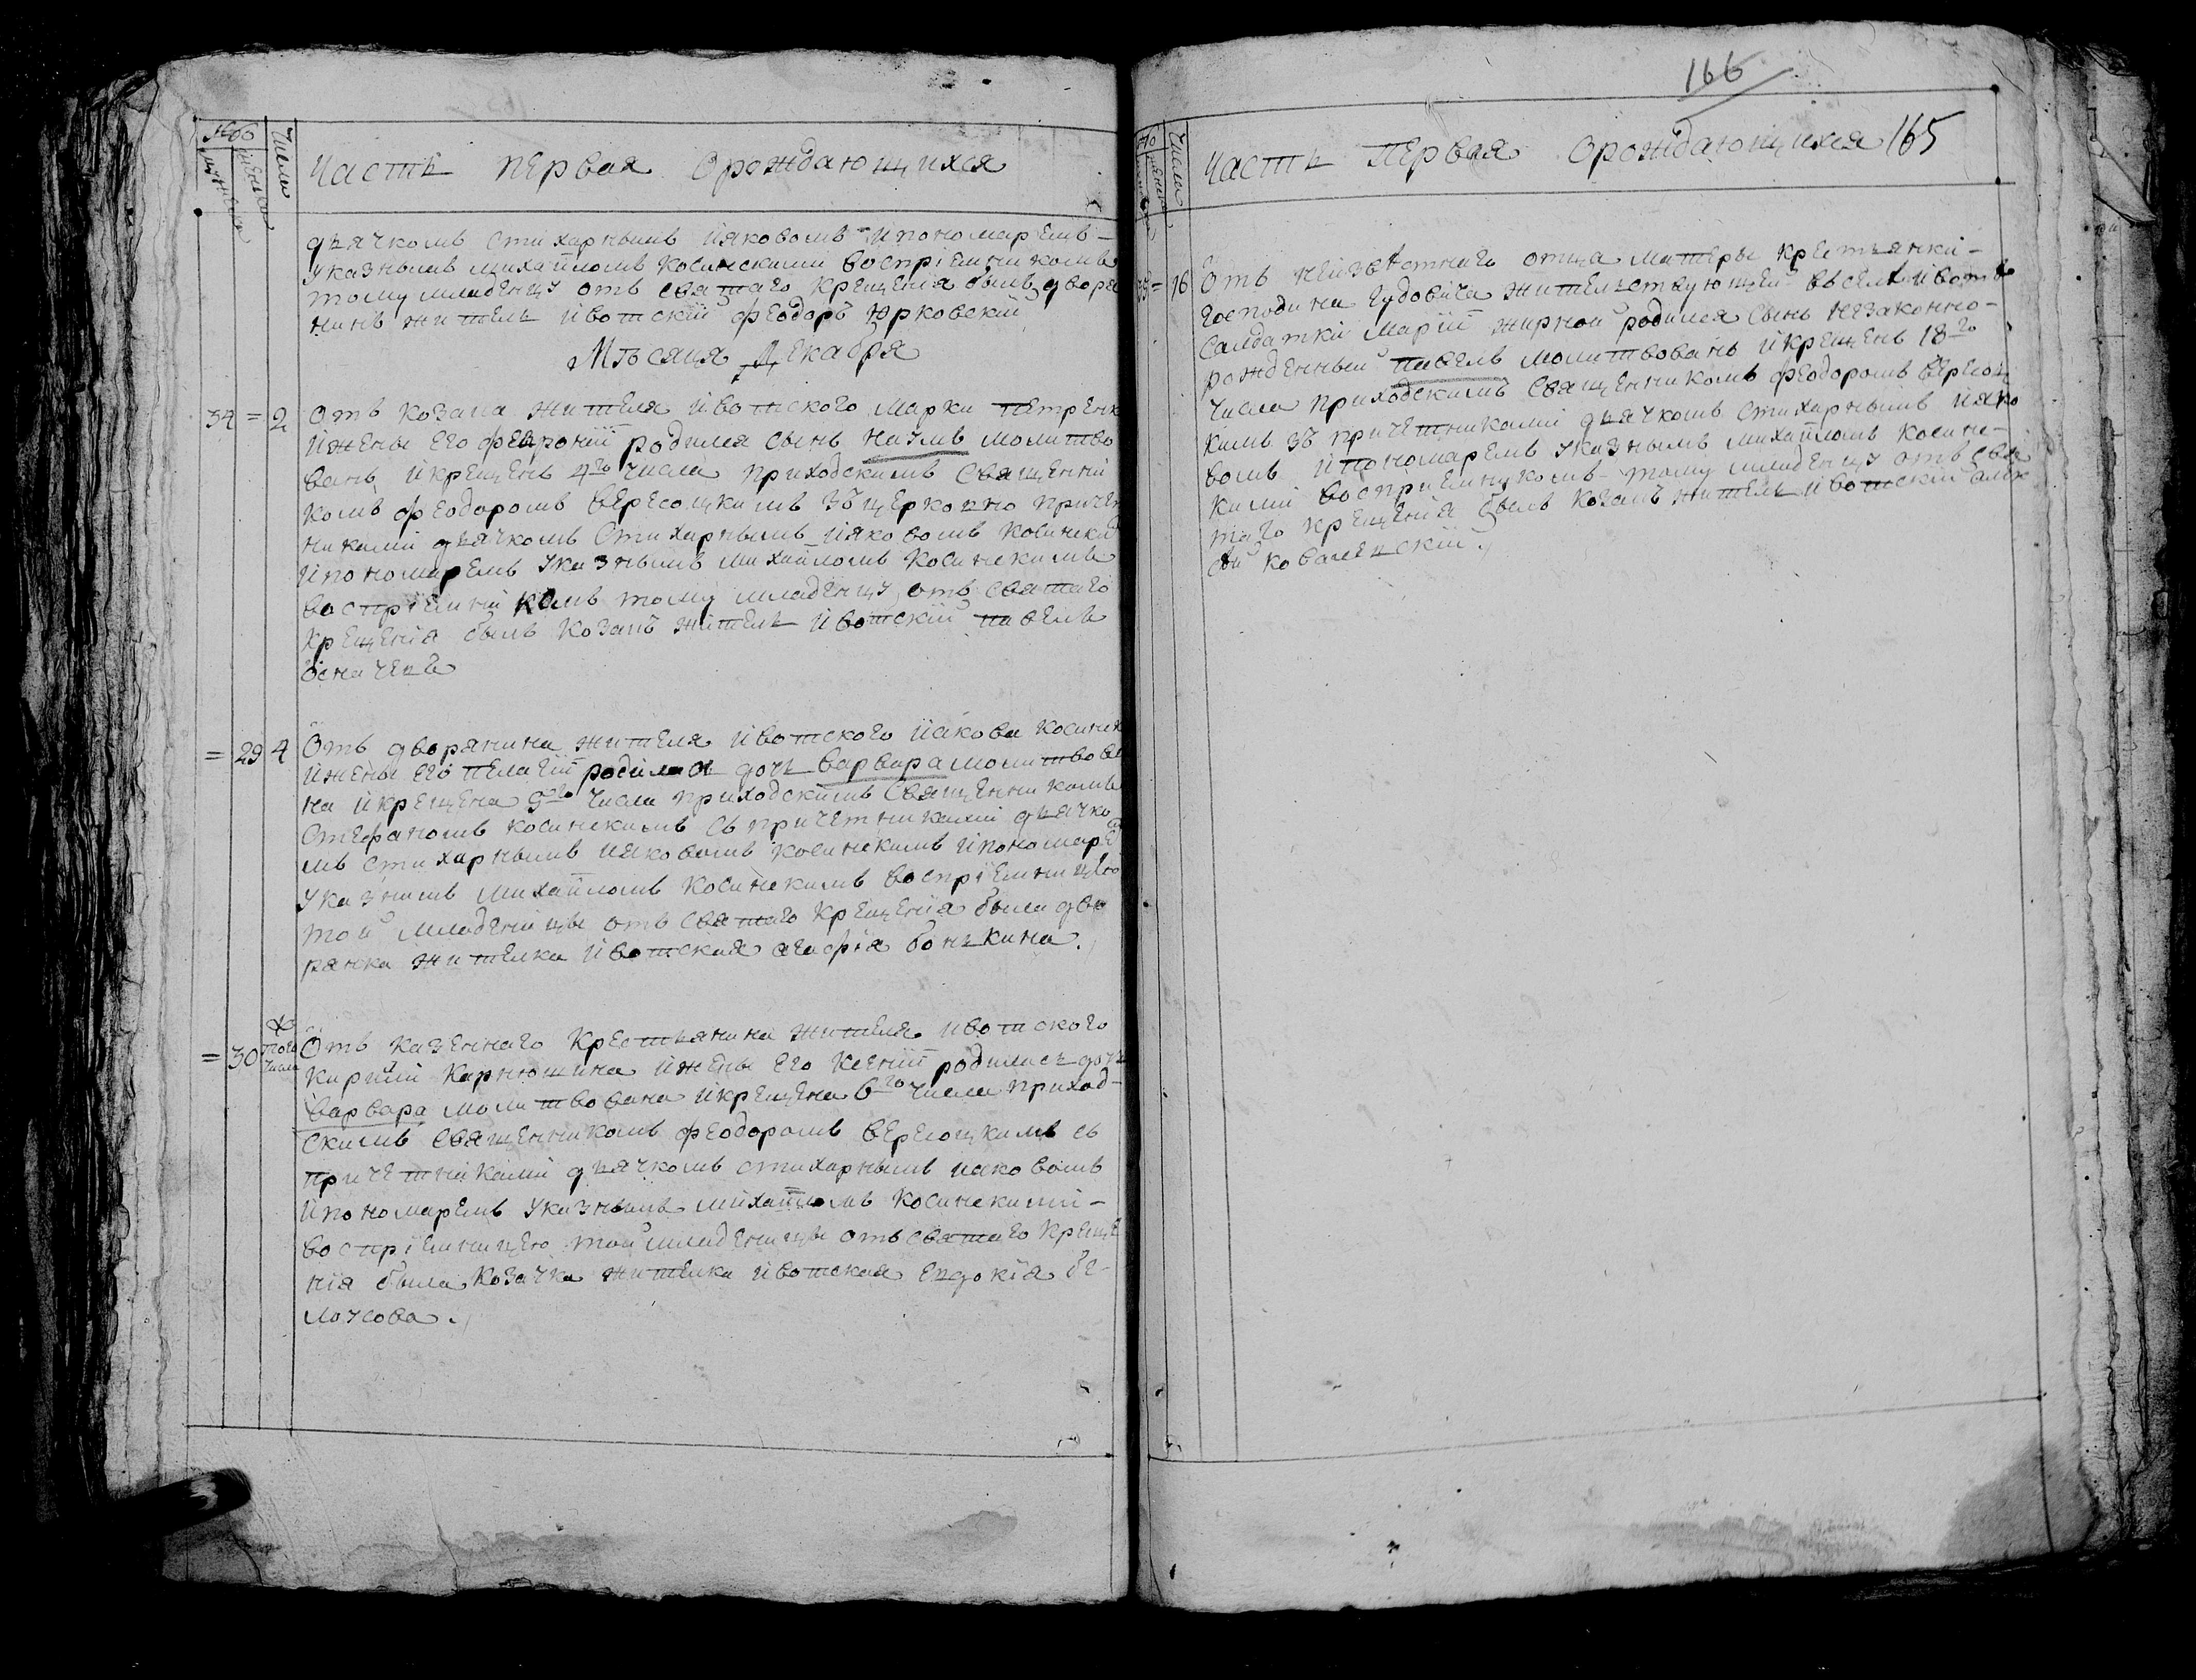 Число
Часть первая орождающихся
дьячкомъ стихарнымъ Іяковомъ ипономаремъ-
указнымъ михайломъ косинскими воспріемникомъ
тому младенцу отъ святаго крещенія былъ дворя
нинъ житель ивотскій феодоръ Юрковскій
Мѣсяця Декабря
34 = 2 Отъ козака жителя ивотского марка петренк
ижены его февроніи родился сынъ наумъ молитво
ванъ икрещенъ 4го числа приходскимъ священни
комъ феодоромъ вересоцкимъ зъ церковно причет
никами дьячкомъ стихарнымъ Іяковомъ косински
ипономаремъ указнымъ михайломъ косинскимъ
воспріемникомъ тому младенцу отъ святаго
крещенія былъ козакъ житель ивотскій павелъ
= 29 4 Отъ дворянина жителя ивотского Іакова косинск
ижены его пелагіи родилася дочь варвара молитвова
на икрещена 9го числа приходскимъ священникомъ
стефаномъ косинскимъ съ причетниками дьячко
мъ стихарнымъ Іяковомъ косинскимъ ипономаре
указнимъ михайломъ косинскимъ воспріемницею
той младеницы отъ святаго крещенія была дво
рянка жителка ивотская агафія бонькина.
= 30 того числа Отъ казеннаго крестьянина жителя ивотского
кирилы карнюшина ижены его ксеніи родилась дочь
варвара молитвована икрещена 6го числа приход-
скимъ священникомъ феодоромъ вересоцкимъ съ
причетниками дьячкомъ стихарнымъ иаковомъ
ипономаремъ указнымъ михайломъ косинскими-
воспріемницею той младеницы отъ святаго креще
нія была козачка жителка ивотская евдокія бе-
лоусова.
166
Число
Часть первая орождающихся 165
= 16 Отъ неизвѣстнаго отца матеры крестьянки-
господина гудовича жительствующей въселѣ ивоть
салдатки маріи жирной родился сынъ незаконно-
рожденный павелъ молитвованъ икрещенъ 18го
числа приходскимъ священникомъ феодоромъ вересоц
кимъ зъ причетниками дьячкомъ стихарнымъ Іяко
вомъ ипономаремъ указнымъ михайломъ косинс-
кими воспріемникомъ тому младенцу отъ свя
таго крещенія былъ козакъ житель ивотскій алек
сѣй коваленскій.